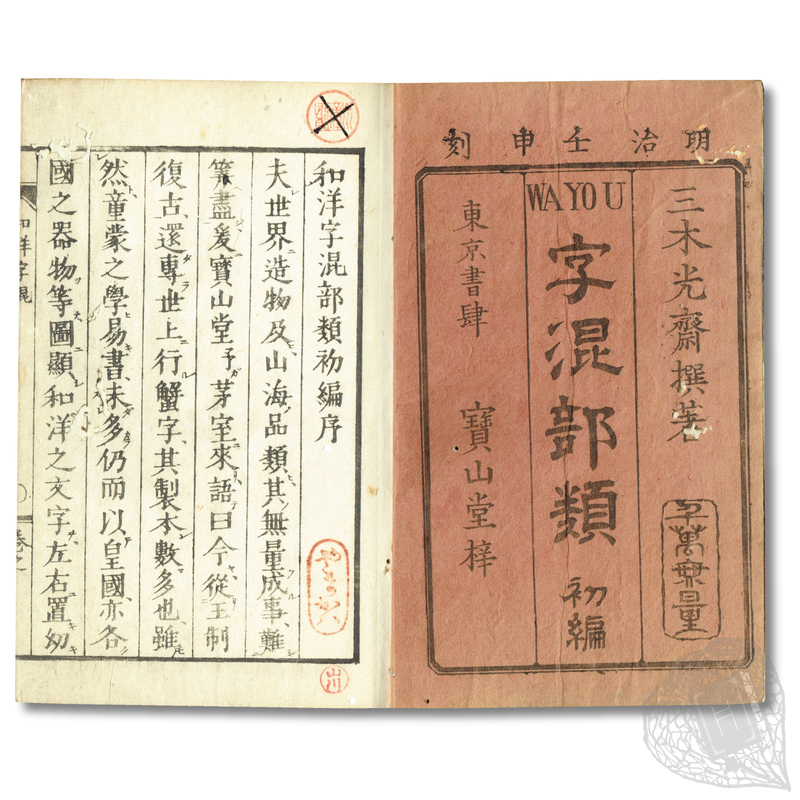 明治壬申刻
三木光齋撰著
千萬無量
WAYOU
字混部類
初編
東京書肆
寶山堂梓
和洋字混部類初編序
夫世界造物及山海品類其無量成事難
筭盡爰寶山堂予茅室來語曰今從王制
復古還專世上行蟹字其製本數多也雖
然童蒙之學易書未多仍而以皇國亦各
國之器物等圖顯和洋之文字左右置幼
和洋字混